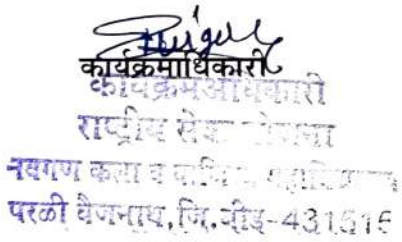 कार्यक्रमाधिकारी
कार्यक्रमअधिकारी
राष्ट्रीय सेवा योजना
नवगण कला व वाणिज्य महाविद्यालय
परळी वैजनाथ, जि.बीड-431515